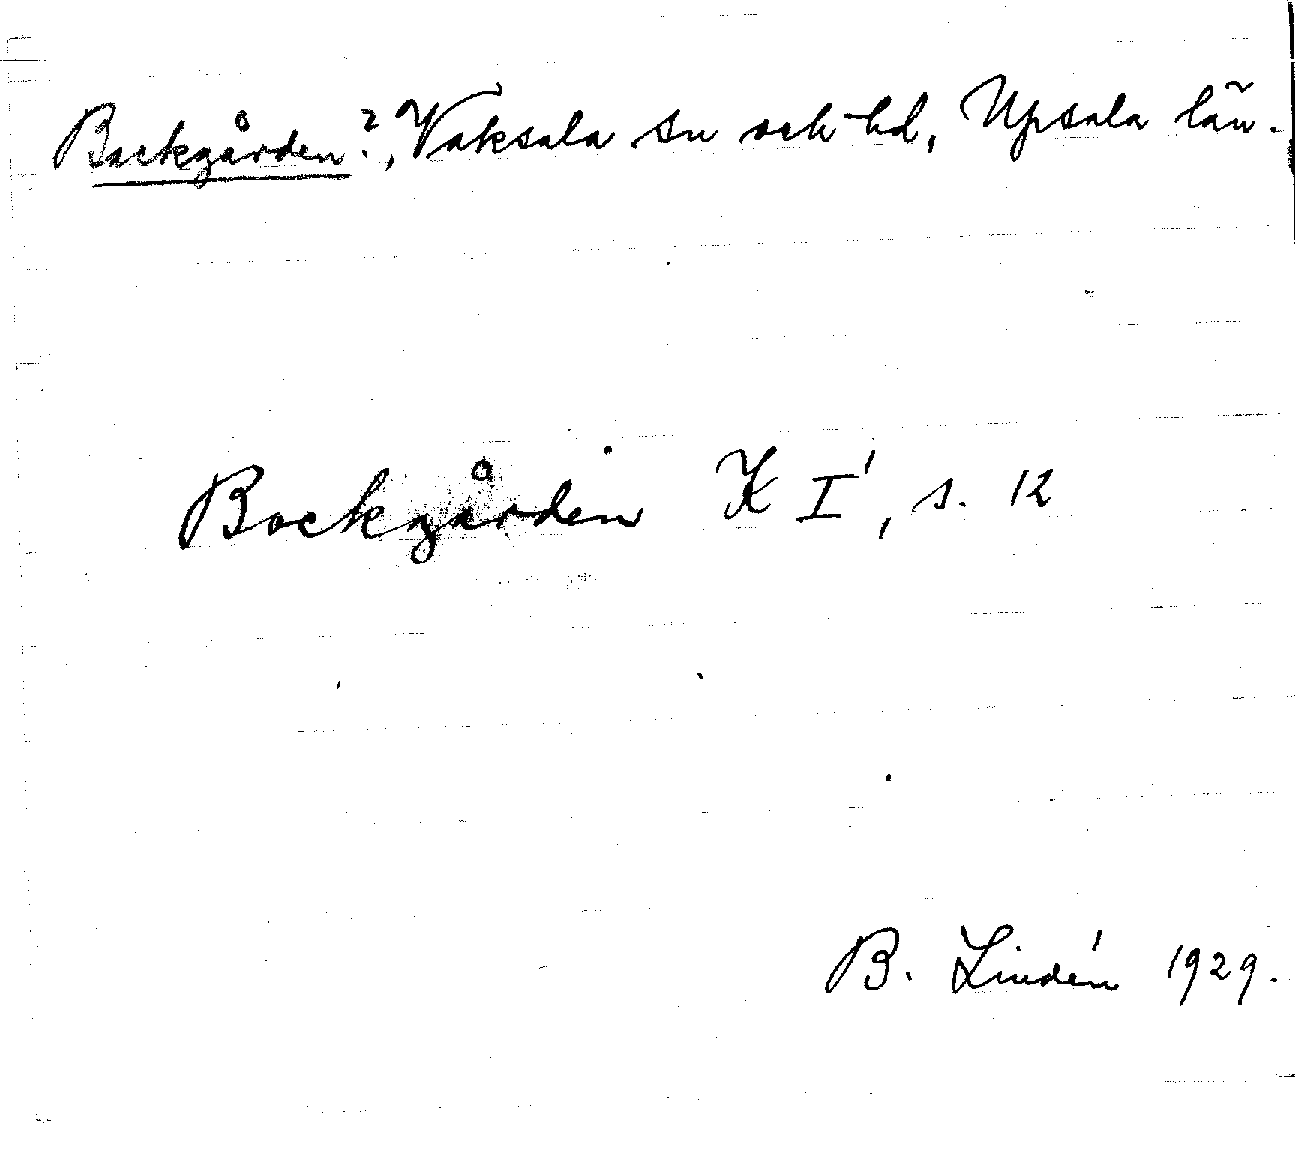 Bockgården?, Vaksala sn och hd, Upsala län.
Bockgården K I', s. 12
B. Lindén 1929.